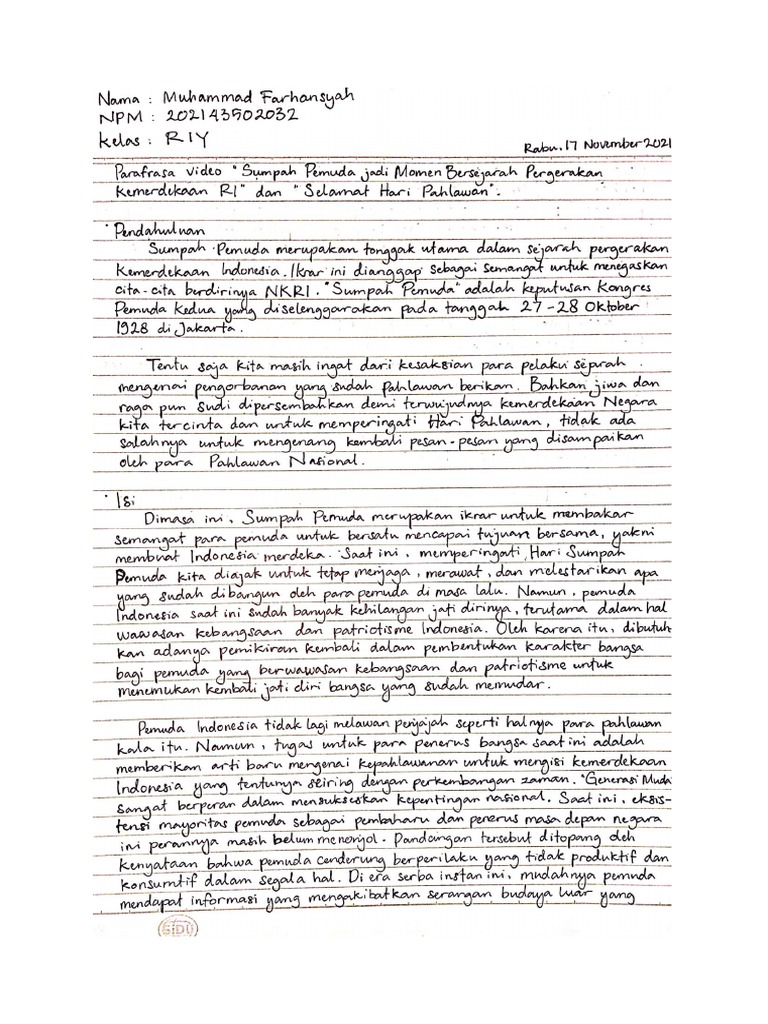 Nama : Muhammad Farhansyah
NPM : 202143502032
Kelas : R1Y
Rabu, 17 November 2021
Parafrasa Video "Sumpah Pemuda jadi Momen Bersejarah Pergerakan
Kemerdekaan RI" dan "Selamat Hari Pahlawan".
· Pendahuluan
Sumpah Pemuda merupakan tonggak utama dalam sejarah pergerakan
Kemerdekaan Indonesia. Ikrar ini dianggap sebagai semangat untuk menegaskan
cita-cita berdirinya NKRI. "Sumpah Pemuda" adalah keputusan Kongres
Pemuda Kedua yang diselenggarakan pada tanggah 27-28 Oktober
1928 di Jakarta.
Tentu saja kita masih ingat dari kesaksian para pelaku sejarah
mengenai pengorbanan yang sudah Pahlawan berikan. Bahkan jiwa dan
raga pun sudi dipersembahkan demi terwujudnya kemerdekaan Negara
kita tercinta dan untuk memperingati Hari Pahlawan, tidak ada
salahnya untuk mengenang kembali pesan-pesan yang disampaikan
oleh para Pahlawan Nasional.
· Isi
Dimasa ini, Sumpah Pemuda merupakan ikrar untuk membakar
semangat para pemuda untuk bersatu mencapai tujuan bersama, yakni
membuat Indonesia merdeka. Saat ini, memperingati Hari Sumpah
Pemuda kita diajak untuk tetap menjaga, merawat, dan melestarikan apa
yang sudah dibangun oleh para pemuda di masa lalu. Namun, pemuda
Indonesia saat ini sudah banyak kehilangan jati dirinya, terutama dalam hal
wawasan kebangsaan dan patriotisme Indonesia. Oleh karena itu, dibutuh
kan adanya pemikiran kembali dalam pembentukan karakter bangsa
bagi pemuda yang berwawasan kebangsaan dan patriotisme untuk
menemukan kembali jati diri bangsa yang sudah memudar.
Pemuda Indonesia tidak lagi melawan penjajah seperti halnya para pahlawan
kala itu. Namun, tugas untuk para penerus bangsa saat ini adalah
memberikan arti baru mengenai kepahlawanan untuk mengisi kemerdekaan
Indonesia yang tentunya seiring dengan perkembangan zaman. Generasi Muda
sangat berperan dalam mensukseskan kepentingan nasional. Saat ini, eksis-
tensi mayoritas pemuda sebagai pembaharu dan penerus masa depan negara
ini perannya masih belum menonjol. Pandangan tersebut ditopang oleh
kenyataan bahwa pemuda cenderung berperilaku yang tidak produktif dan
konsumtif dalam segala hal. Di era serba instan ini, mudahnya pemuda
mendapat informasi yang mengakibatkan serangan budaya luar yang
SIDU